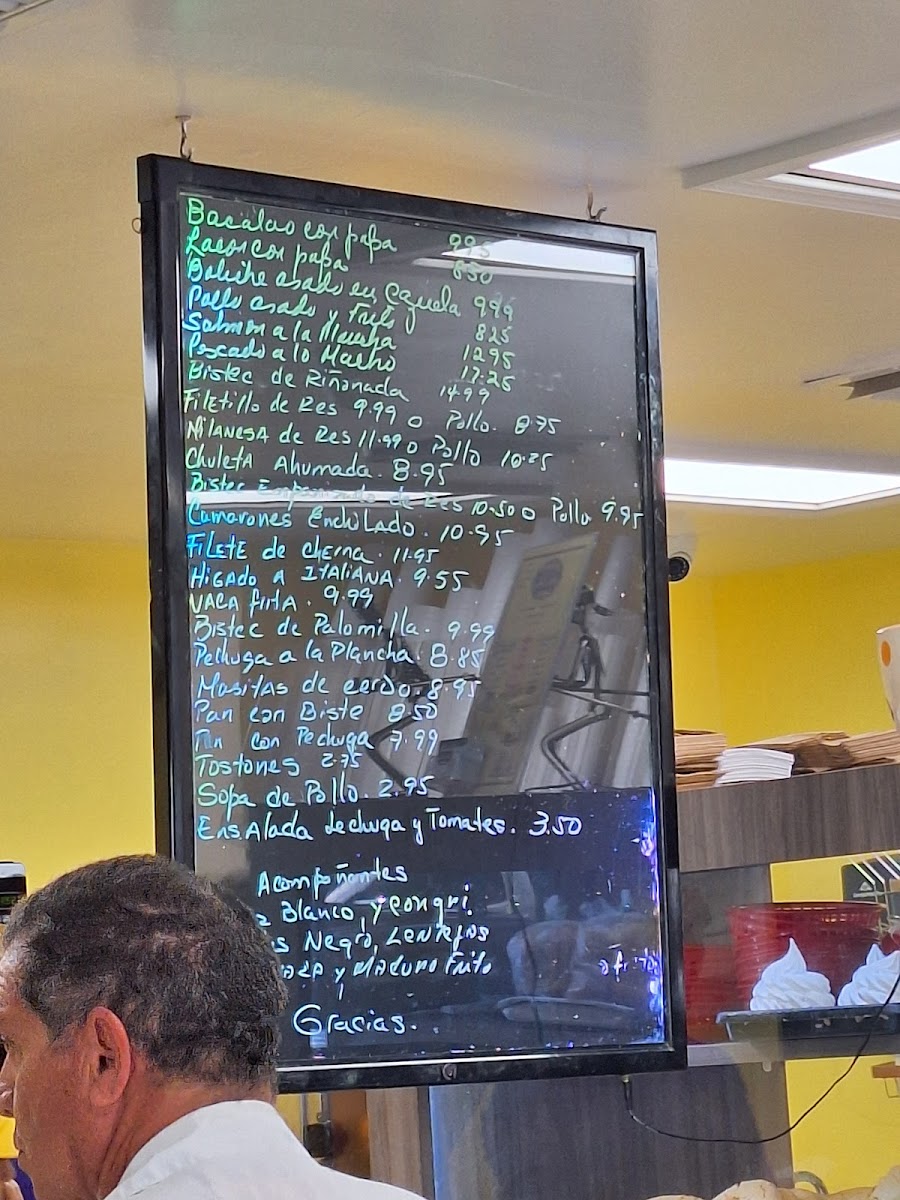 Bacalao con papa 995
Lacon con papa 850
Boliche asado en cazuela 999
Pollo asado y Frito 825
Salmon a la Plancha 1295
Pescado a lo Macho 17.25
Bistec de Riñonada 14.99
Filetillo de Res 9.99 o Pollo. 8.75
Milanesa de Res 11.99 o Pollo 10.25
Chuleta Ahumada. 8.95
Bistec Empanizado de Res 10.50 o Pollo 9.95
Camarones Enchilado. 10.95
Filete de cherna. 11.95
Higado a Italiana. 9.55
Vaca frita. 9.99
Bistec de Palomilla. 9.99
Pechuga a la Plancha. 8.85
Masitas de cerdo. 8.95
Pan con Biste 8.50
Pan con Pechuga 7.99
Tostones 2.75
Sopa de Pollo. 2.95
Ensalada Lechuga y Tomates. 3.50
Acompañantes
Blanco, y congri,
Negro, Lentejas
y Maduro Frito
Gracias.